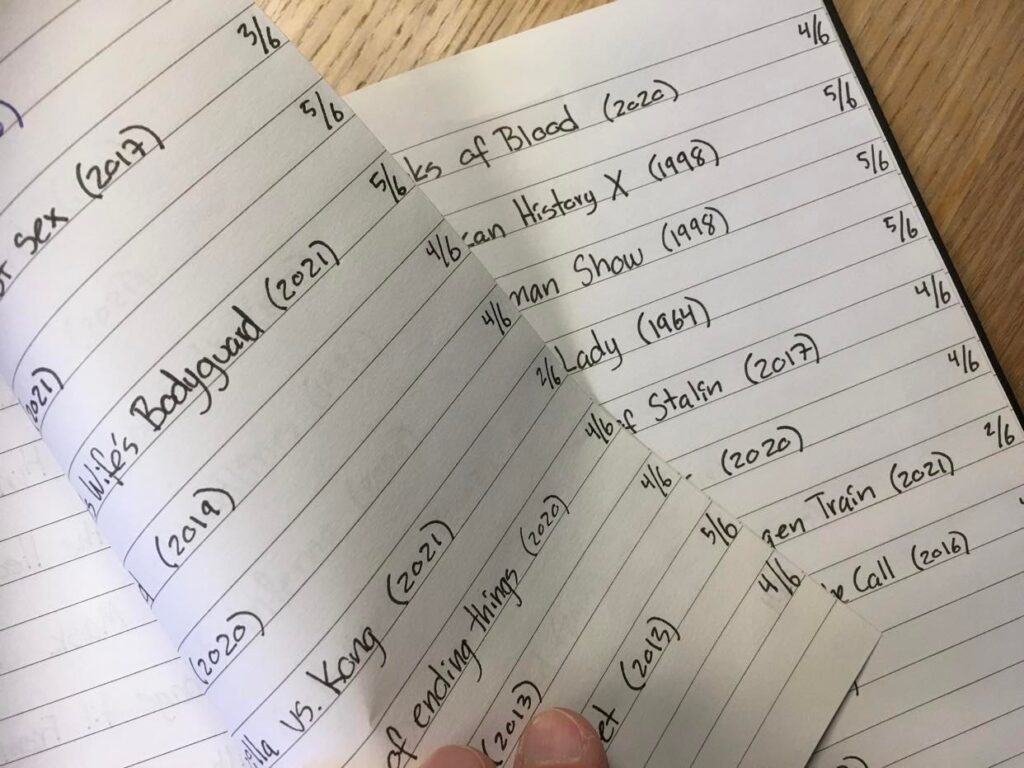 sex (2017) 3/6
2021) 5/6
Wife's Bodyguard (2021) 5/6
(2019) 4/6
(2020) 4/6
lla vs. Kong (2021) 2/6
of ending things (2020) 4/6
(2013) 4/6
et (2013) 5/6
4/6
ks of Blood (2020) 4/6
can History X (1998) 5/6
man Show (1998) 5/6
Lady (1964) 5/6
of Stalin (2017) 4/6
(2020) 4/6
gen Train (2021) 2/6
Call (2016)